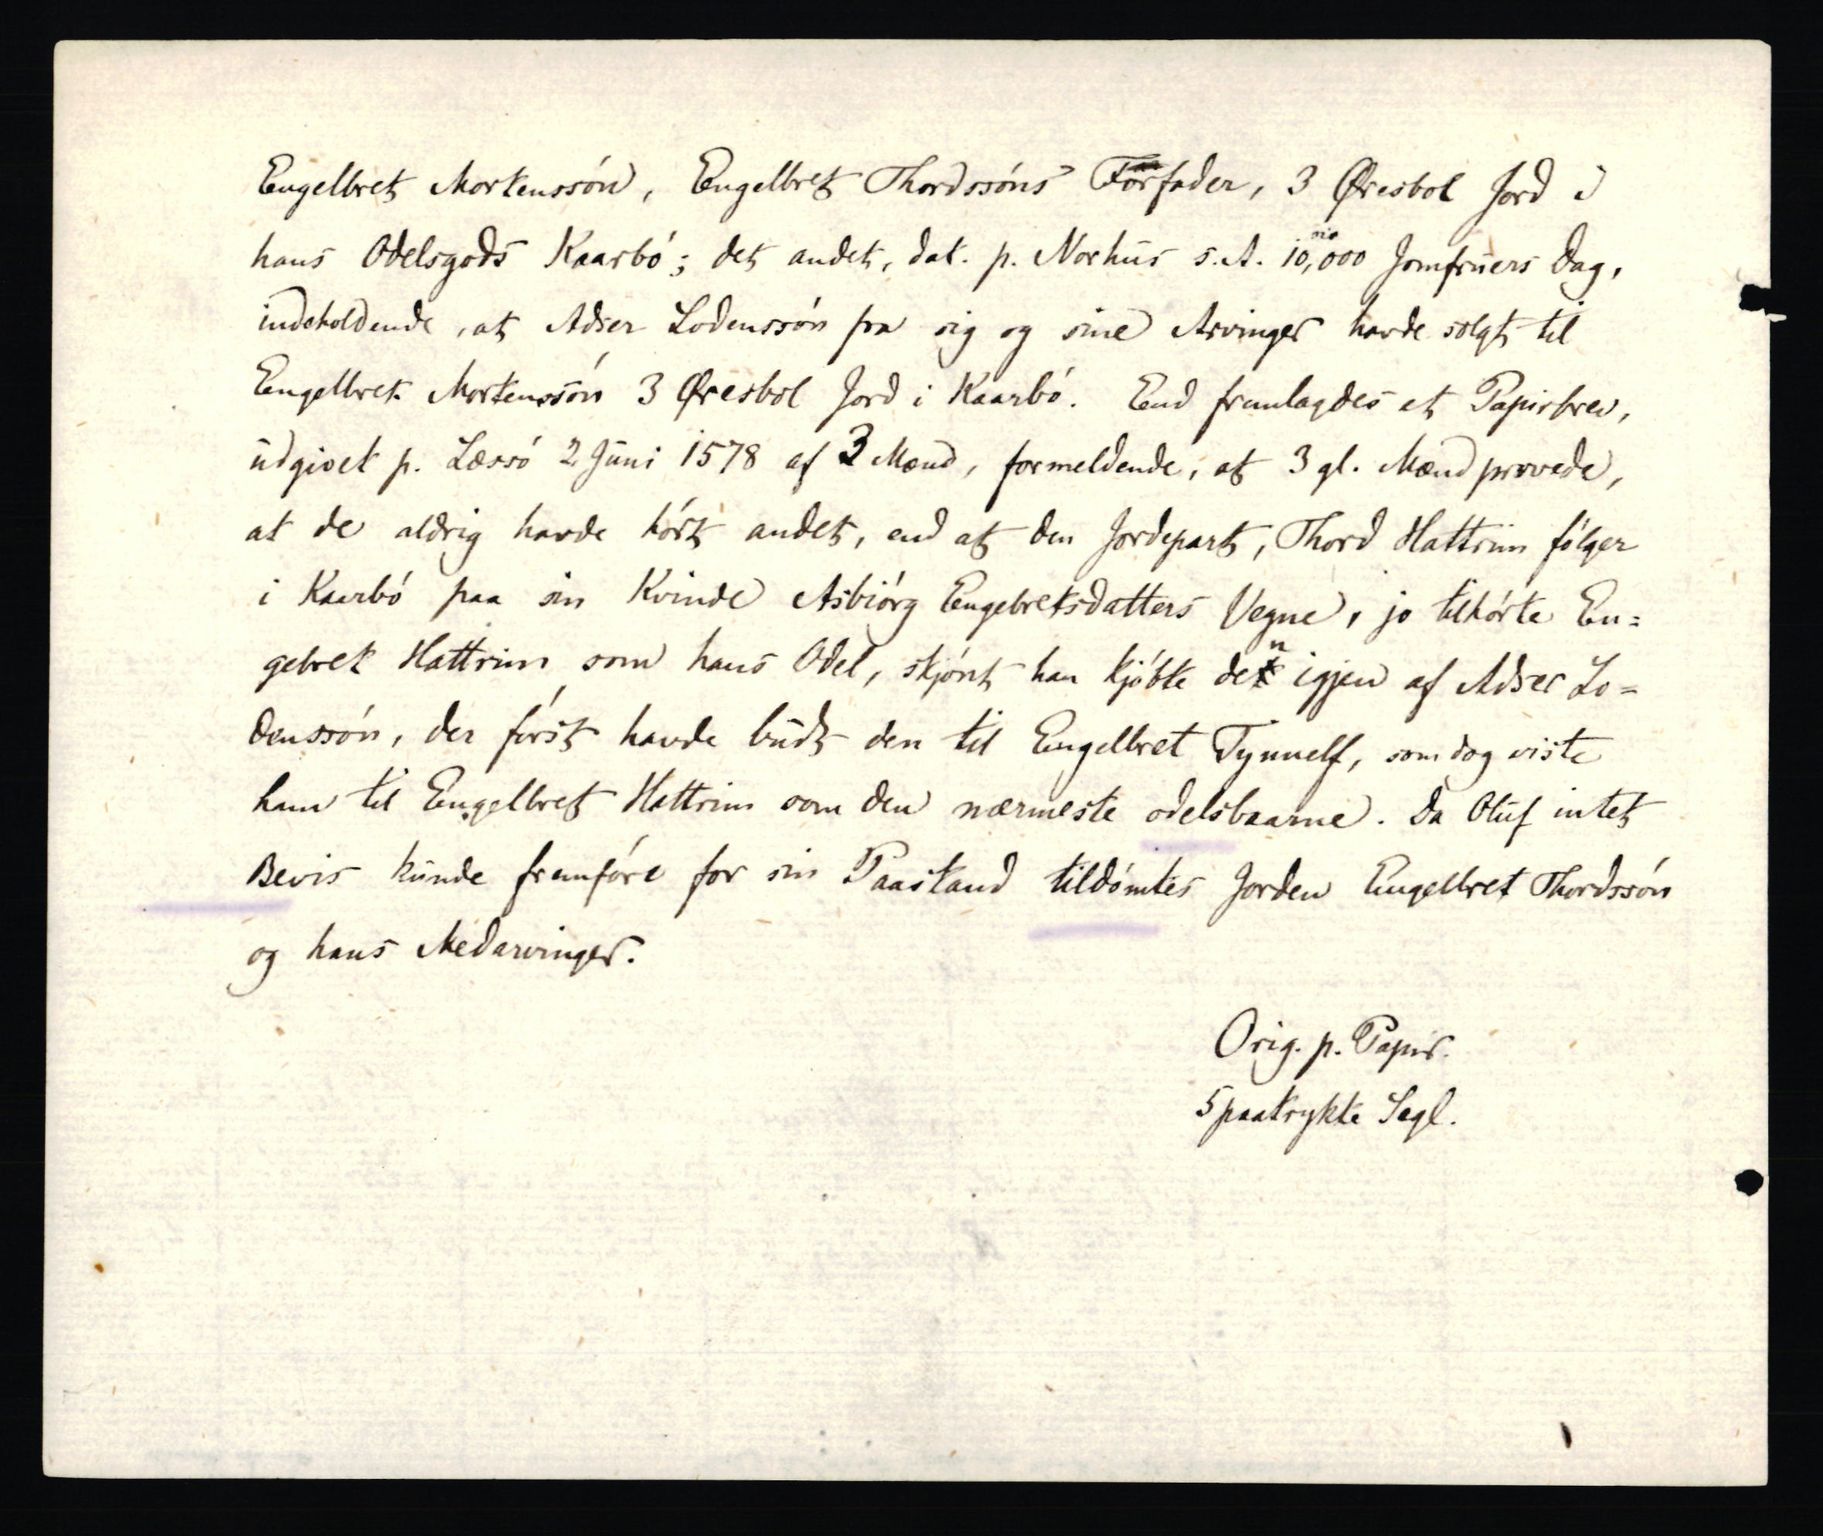 Engelbret Mortenssön, Engelbret Thordssöns Forfader, 3 Øresbol Jord i
hans Odelsgods Kaarbö; det andet, dat. p. Norhus s. A. 10,000 Jomfruers Dag,
indeholdende, at Adser Lodenssön fra sig og sine Arvinger havde solgt til
Engelbret Mortenssön 3 Øresbol Jord i Kaarbö. End fremlagdes et Papirbrev,
udgivet p. Læssö 2 Juni 1578 af 3 Mænd, formeldende, at 3 gl. Mænd provede,
at de aldrig havde hört andet, end at den Jordepart, Thord Hattrim fölger
i Kaarbö paa sin Kvinde Asbiörg Engebretsdatters Vegne, jo tilhörte En=
gebret Hattrim som hans Odel, skjönt han kjöbte den igjen af Adser Lo=
denssön, der först havde budt den til Engelbret Tynnelf, som dog viste
ham til Engelbret Hattrim som den nærmeste odelsbaarne. Da Oluf intet
Bevis kunde fremföre for sin Paastand tildömtes Jorden Engelbret Thordssön
og hans Medarvinger.
Orig. p. Papir.
5 paatrykte Segl.